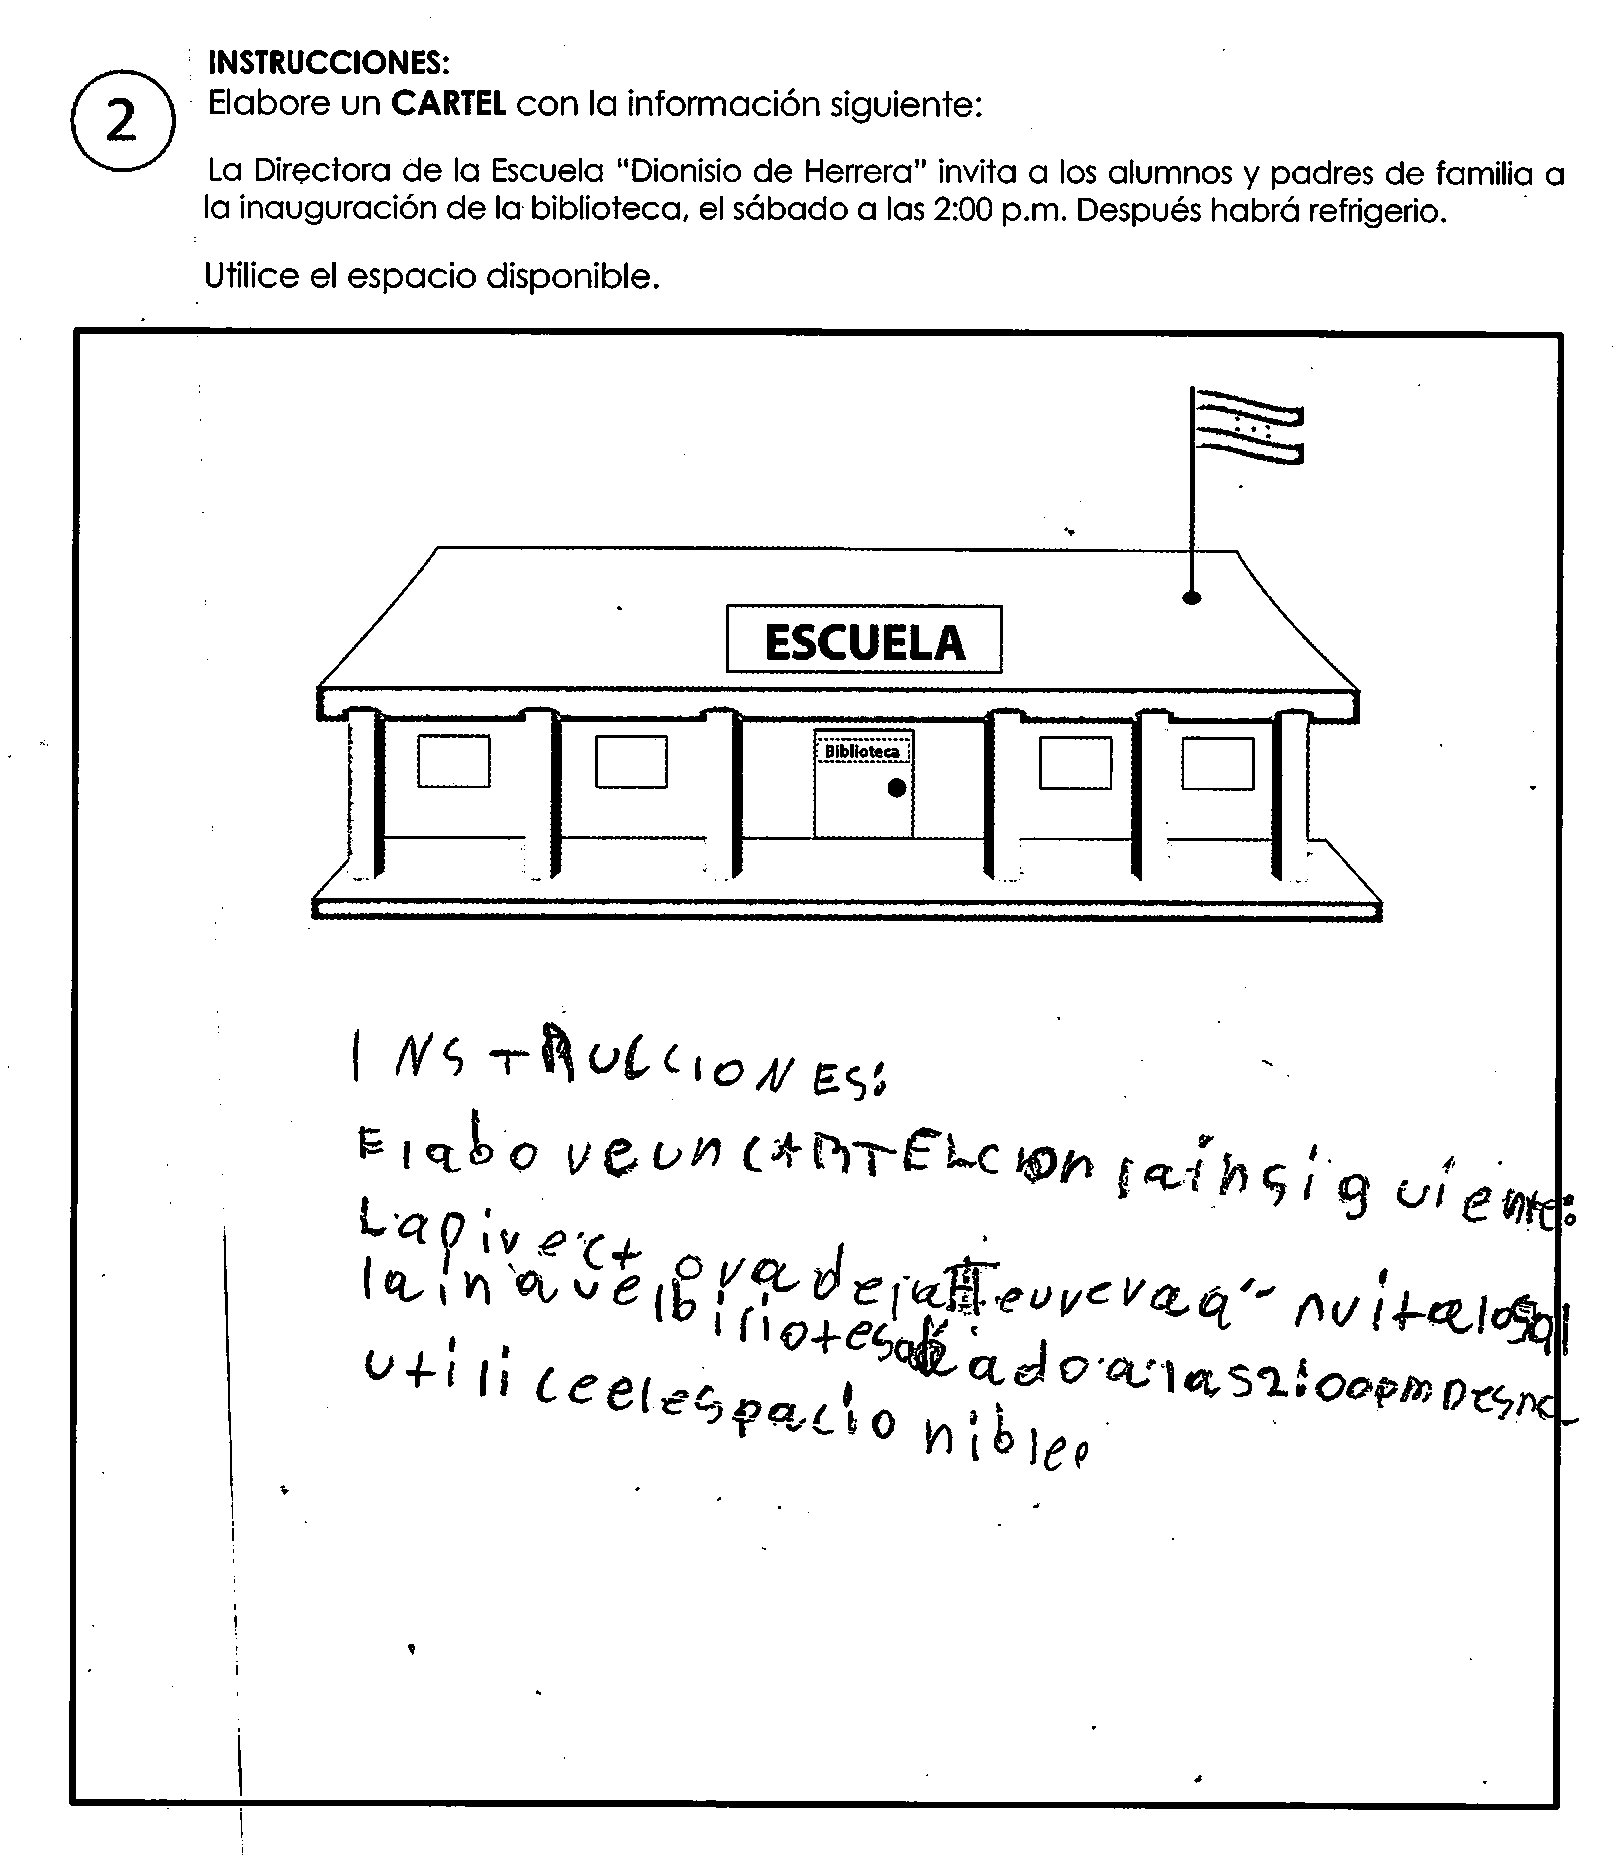 INSTRUCCIONES:
2
Elabore un CARTEL con la información siguiente:
La Directora de la Escuela "Dionisio de Herrera" invita a los alumnos y padres de familia a
la inauguración de la biblioteca, el sábado a las 2:00 p.m. Después habrá refrigerio.
Utilice el espacio disponible.
ESCUELA
Biblioteca
INSTRUCCIONES:
Elabo ve un CARTEL con la insiguiente:
La Divectova de
la inauelbiliote ado a las 2:00 pm Des
utilice el espacio nible.